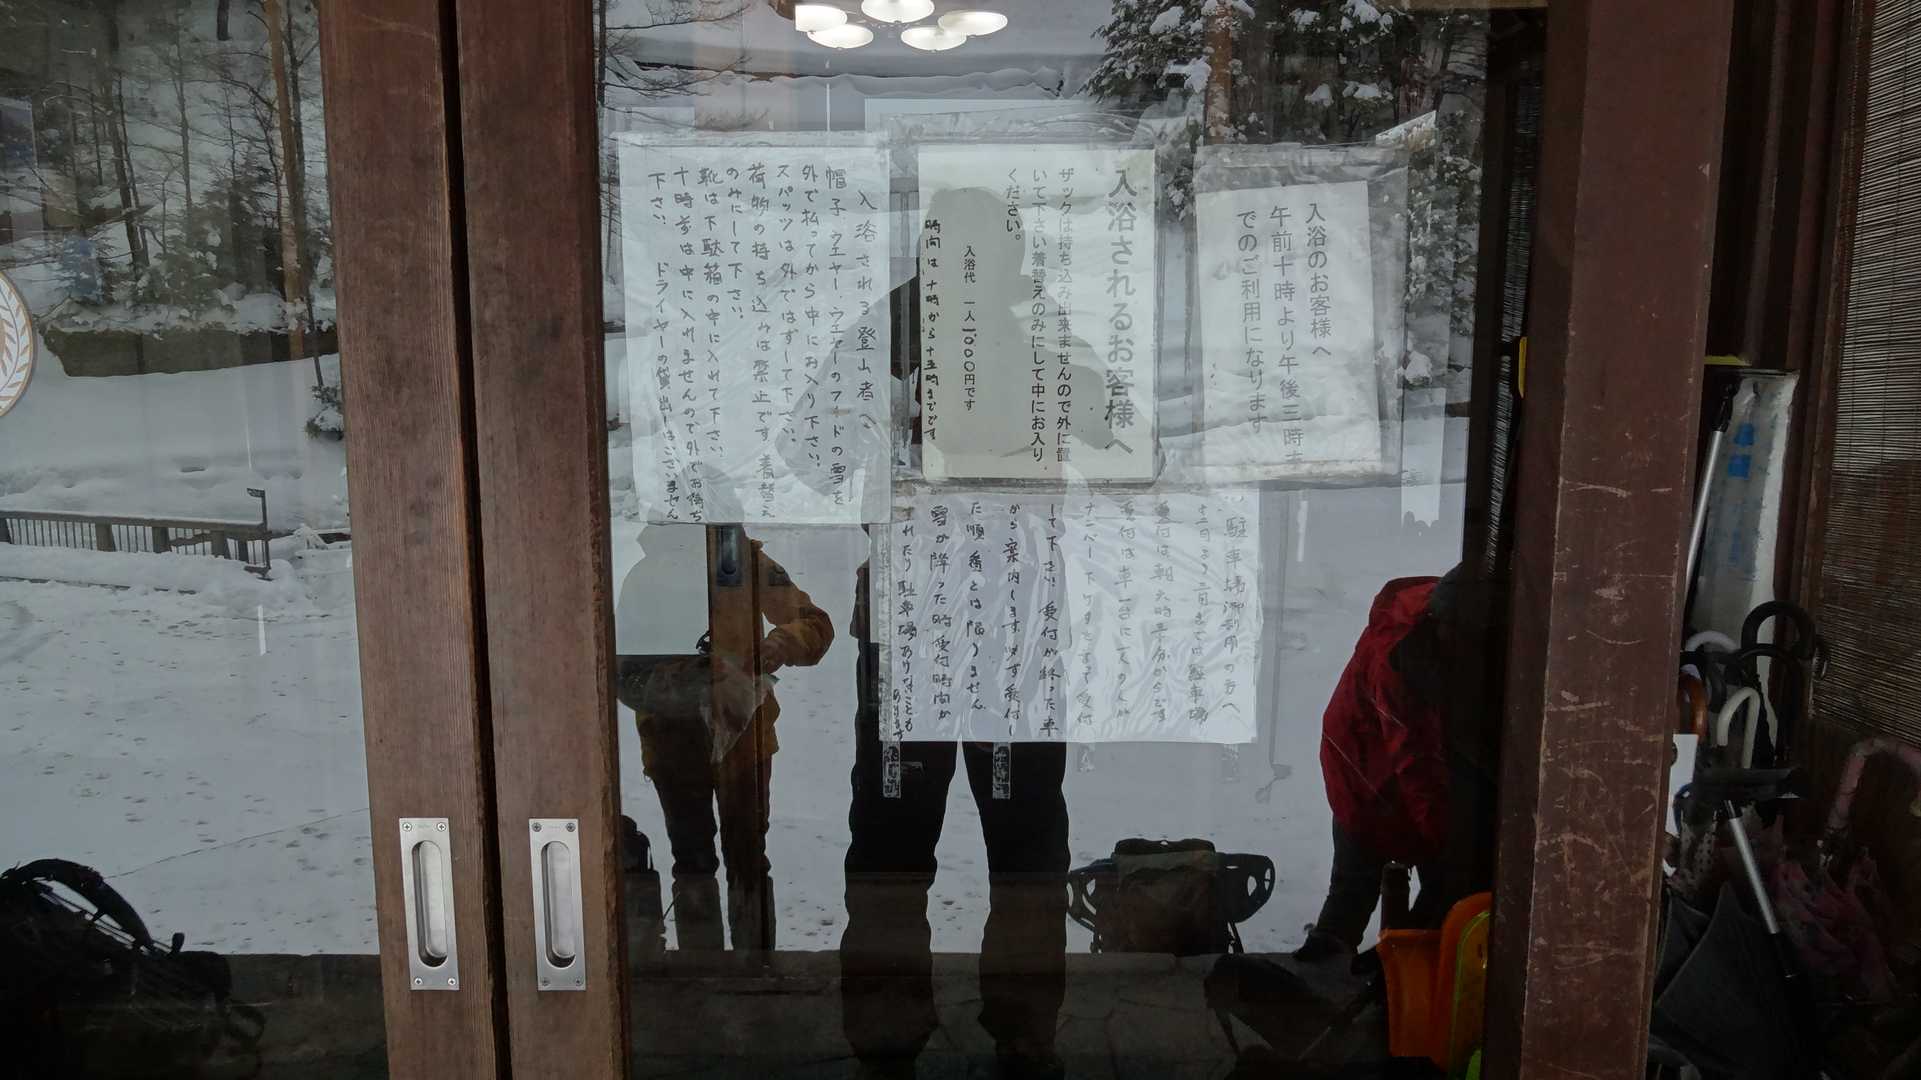 入浴のお客様へ
午前十時より午後三時
でのご利用になります
入浴されるお客様へ
ザックは持ち込み出来ませんので外に置
いて下さい着替えのみにして中にお入り
ください。
入浴代 一人1,000円です
時間は、十時から十五時までです
入浴される登山者へ
帽子、ウエヤー・ウエヤーのフードの雪を
外で払ってから中にお入り下さい。
スパッツは外ではずして下さい。
荷物の持ち込みは禁止です 着替え
のみにして下さい。
靴は下駄箱の中に入れて下さい。
十時前は中に入れませんので外でお待ち
下さい。 ドライヤーの貸出しはございません
駐車場御利用の方へ
十二月より三月までは駐車場
受付は朝六時半分からです
受付は車一台に一人のみが
して下さい。受付が終った車
から案内します。必ず受付し
た順番とは限りません
雪が降った時受付時間が
れたり駐車場ありなことも
あります